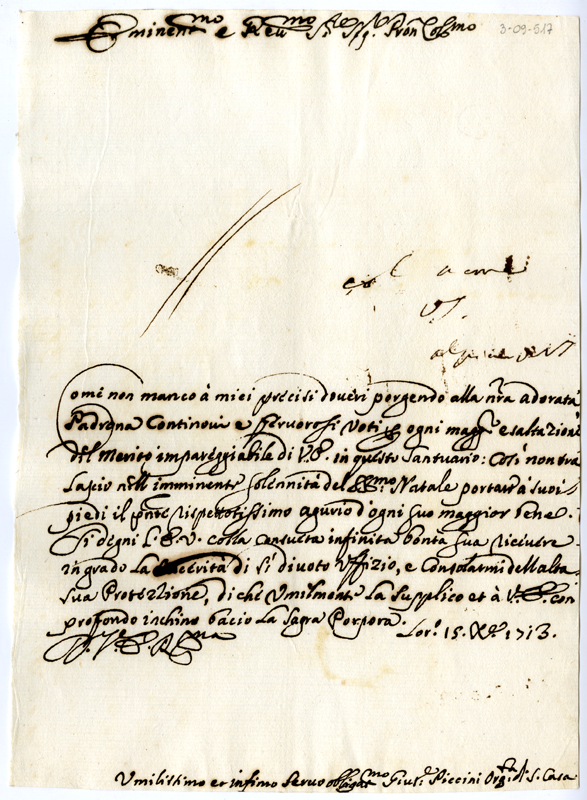 Eminent.mo e Reu.mo Sig. Sig. Pron Coll.mo
3-09-517
Come non manco à miei precisi doueri porgendo alla nra adorata
Padrona Continoui e feruorosi Voti per ogni magg.r esaltazione
del Merito impareggiabile di V.E. in questo Santuario: Così non tra
lascio nell imminente solennità del SS.mo Natale portare à suoi
piedi il pnte rispettosissimo agurio d'ogni suo maggior bene.
Si degni L'E.V. colla consueta infinita bontà sua riceuere
in grado la Sincerità di sì diuoto Vffizio, e Consolarmi dell'alta
sua Protezione, di che Vmilmente La Supplico et à V.E. con
profondo inchino bacio La Sagra Porpora.
Lor.o 15. Xbre 1713.
D. V. E. R.ma
Vmilissimo et infimo Seruo obbligat.mo Giust. Piccini Org.ta di S. Casa